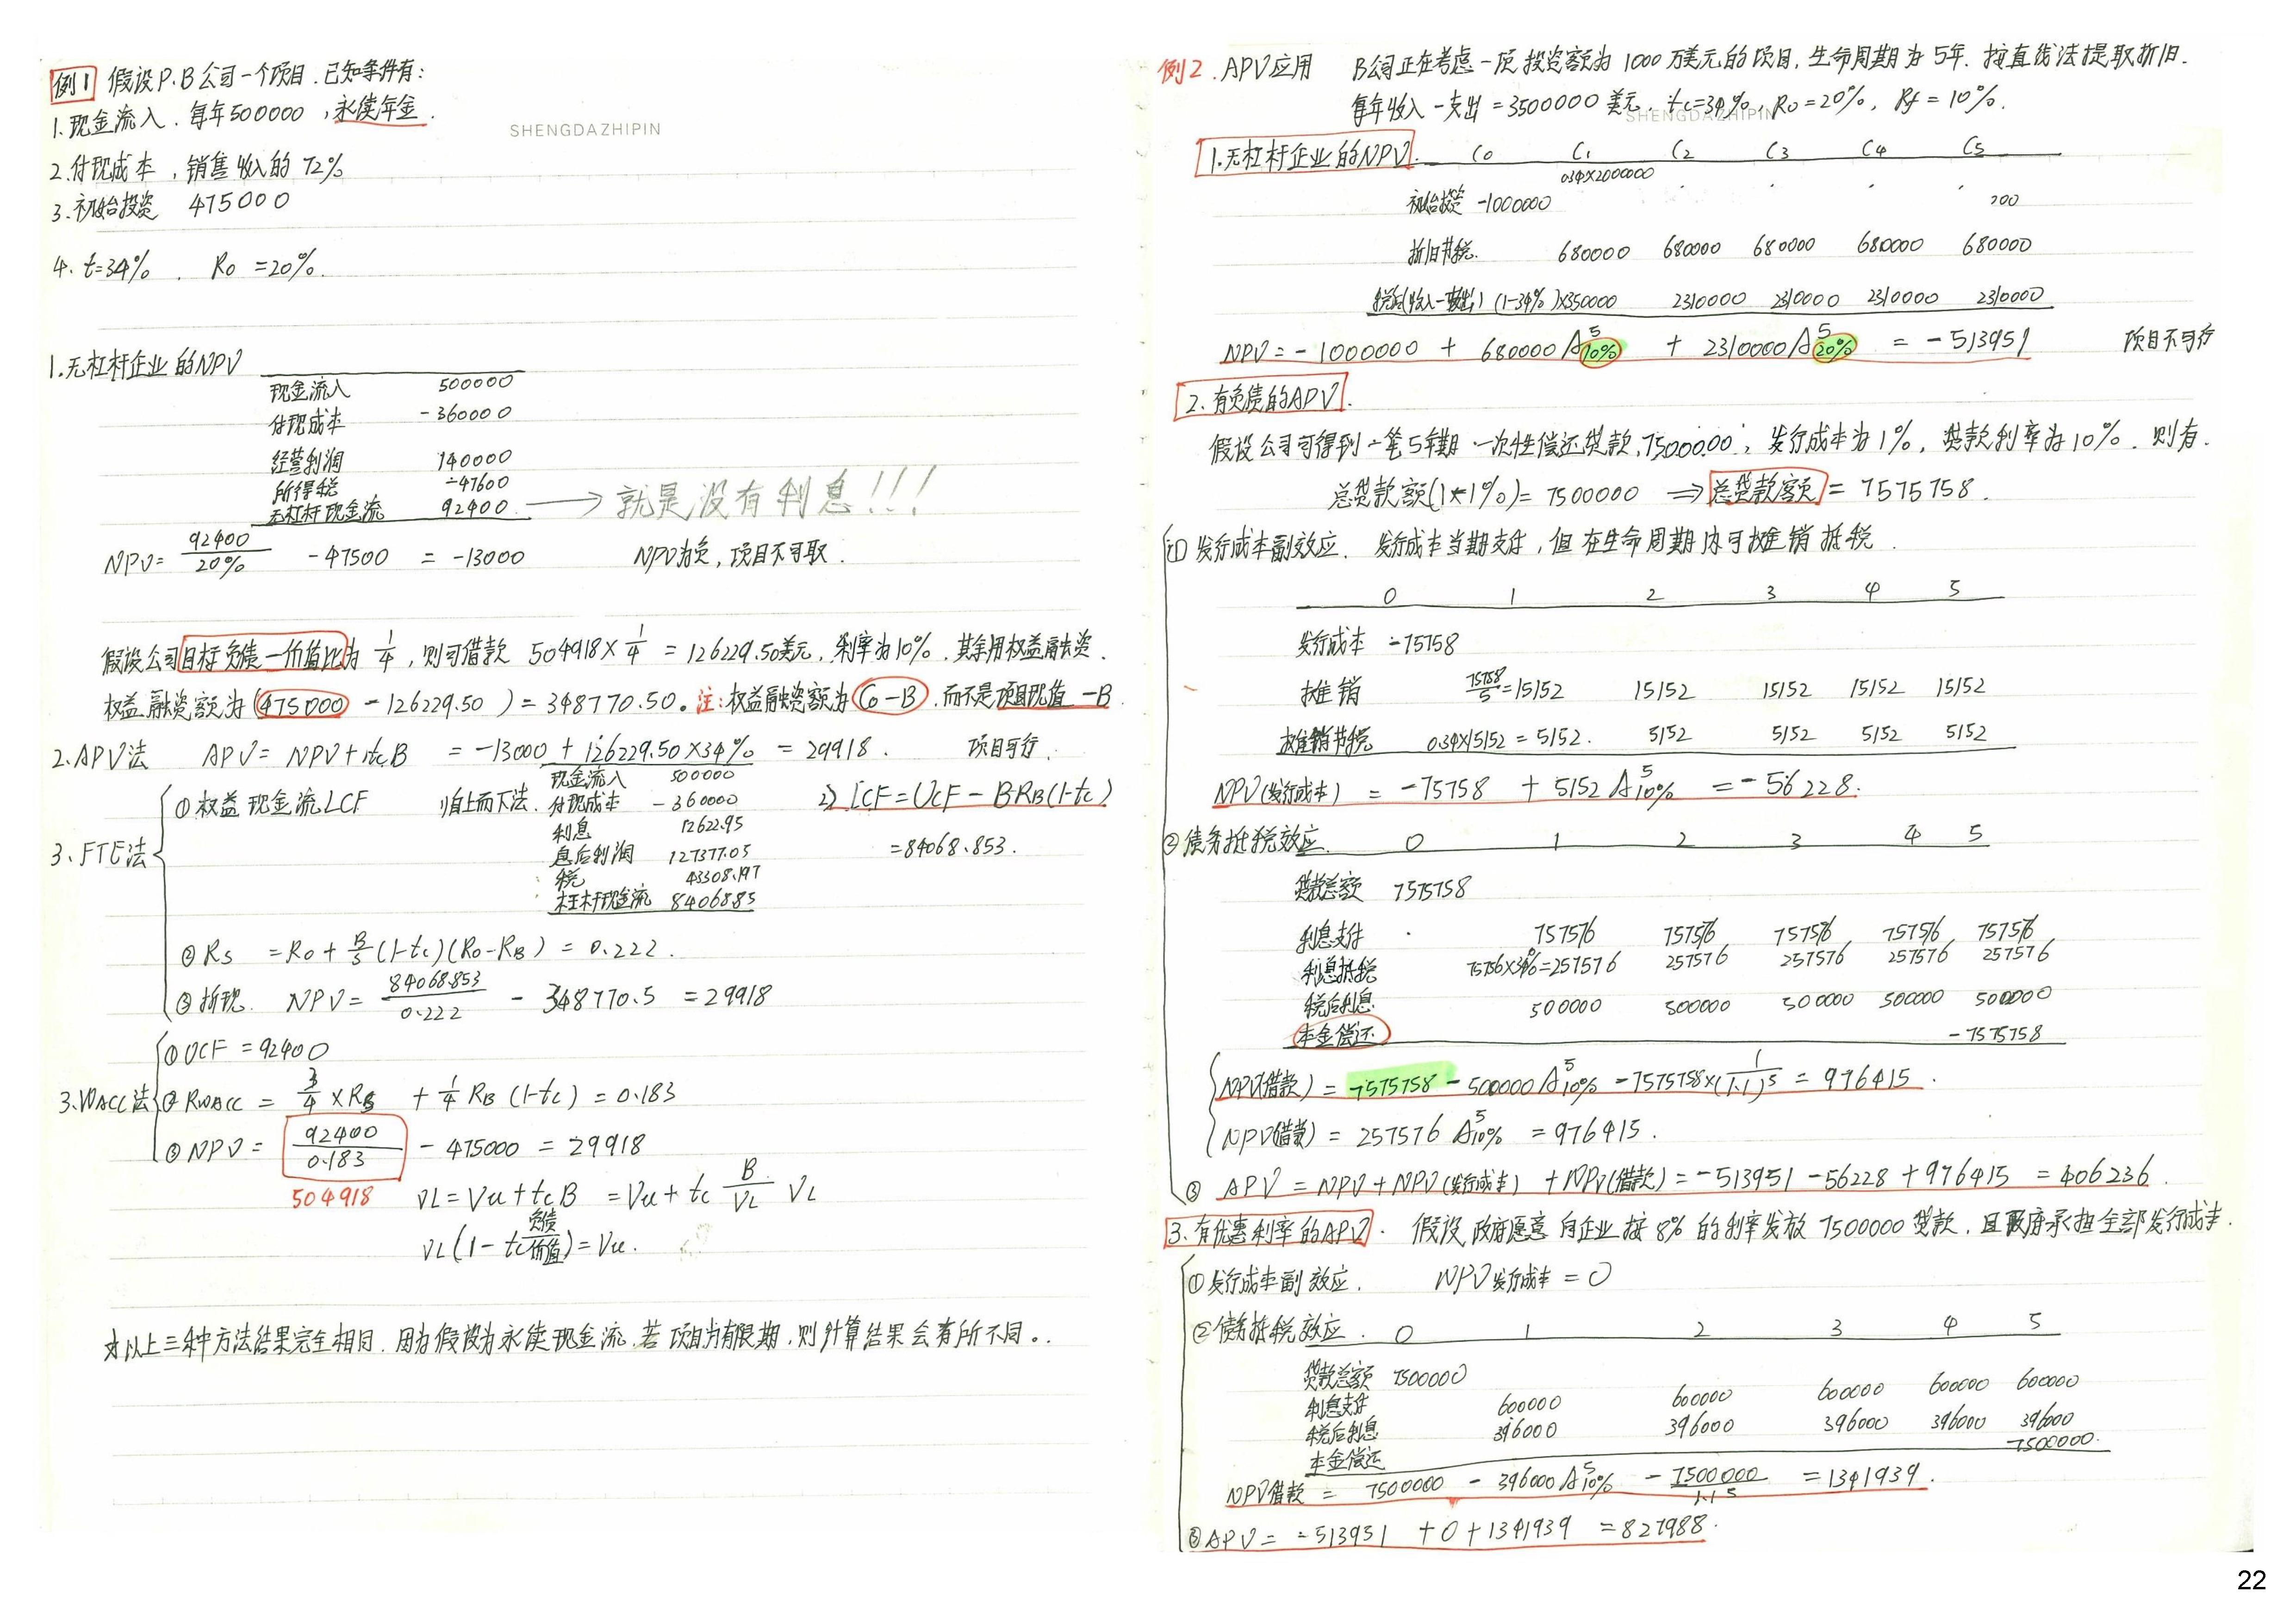 例1 假设P.B公司一个项目.已知条件有:
1.现金流入.每年500000,永续年金.
SHENGDAZHIPIN
2.付现成本,销售收入的72%
3.初始投资 475000
4. t=34%. R0=20%.
1.无杠杆企业的NPV
现金流入 500000
付现成本 -360000
经营利润 140000
所得税 -47600
无杠杆现金流 92400 → 就是没有利息!!!
NPV= 92400/20% -47500 = -13000 NPV为负,项目不可取.
假设公司目标负债一价值比为 1/4,则可借款 504918×1/4 = 126229.50美元.利率为10%.其余用权益融资.
权益融资额为(475000 -126229.50)= 348770.50。注:权益融资额为C0-B.而不是项目现值-B.
2.APV法 APV= NPV+tcB = -13000 + 126229.50×34% = 29918. 项目可行.
3、FTE法
①权益现金流LCF 1)自上而下法.
现金流入 500000
付现成本 -360000
利息 12622.95
息后利润 127377.05
税 43308.197
杠杆现金流 84068.85
2) LCF=UCF-B·RB(1-tc)
=84068.853.
②Rs =R0+B/S(1-tc)(R0-RB)=0.222.
③折现. NPV= 84068.853/0.222 - 348770.5 =29918
3.WACC法
①UCF =92400
②RWACC = 3/4 ×RS + 1/4 RB (1-tc) = 0.183
③NPV= 92400/0.183 - 475000 = 29918
504918 VL=Vu+tcB =Vu+ tc B/VL VL
VL(1-tc负债/价值)=Vu.
以上三种方法结果完全相同.因为假设为永续现金流.若项目为有限期,则计算结果会有所不同。.
例2.APV应用 B公司正在考虑一项投资额为1000万美元的项目,生命周期为5年.按直线法提取折旧.
每年收入一支出=3500000美元.tc=34%,R0=20%,Rf=10%.
SHENGDAZHIPIN
1.无杠杆企业的NPV. C0 C1 C2 C3 C4 C5
0.34×2000000
初始投资 -1000000 200
折旧节税. 680000 680000 680000 680000 680000
税后(收入-支出) (1-34%)×350000 2310000 2310000 2310000 2310000
NPV=-1000000 + 680000A⁵10% + 2310000A⁵20% = -513951 项目不可行
2.有负债的APV.
假设公司可得到一笔5年期一次性偿还贷款,7500000;发行成本为1%,贷款利率为10%.则有.
总贷款额(1-1%)= 7500000 ⇒ 总贷款额= 7575758.
①发行成本副效应. 发行成本当期支付,但在生命周期内可摊销抵税.
0 1 2 3 4 5
发行成本 -75758
摊销 75758/5=15152 15152 15152 15152 15152
摊销节税 0.34×15152=5152. 5152 5152 5152 5152
NPV(发行成本) = -75758 + 5152A⁵10% = -56228.
②债务抵税效应. 0 1 2 3 4 5
贷款总额 7575758
利息支付 757576 757576 757576 757576 757576
利息抵税 75756×34%=257576 257576 257576 257576 257576
税后利息 500000 500000 500000 500000 500000
本金偿还 -7575758
NPV(借款) = 7575758 - 500000A⁵10% - 7575758×(1/1.1)⁵ = 976415.
NPV(借款) = 257576A⁵10% = 976415.
③ APV = NPV+NPV(发行成本) +NPV(借款)=-513951-56228+976415 =406236.
3.有优惠利率的APV. 假设政府愿意向企业按8%的利率发放7500000贷款,且政府承担全部发行成本.
①发行成本副效应. NPV发行成本=0
②债务抵税效应. 0 1 2 3 4 5
贷款总额 7500000
利息支付 600000 600000 600000 600000 600000
税后利息 396000 396000 396000 396000 396000
本金偿还 -7500000.
NPV借款 = 7500000 - 396000A⁵10% - 7500000/1.1⁵ =1341939.
③APV= -513951 +0+1341939 =827988.
22